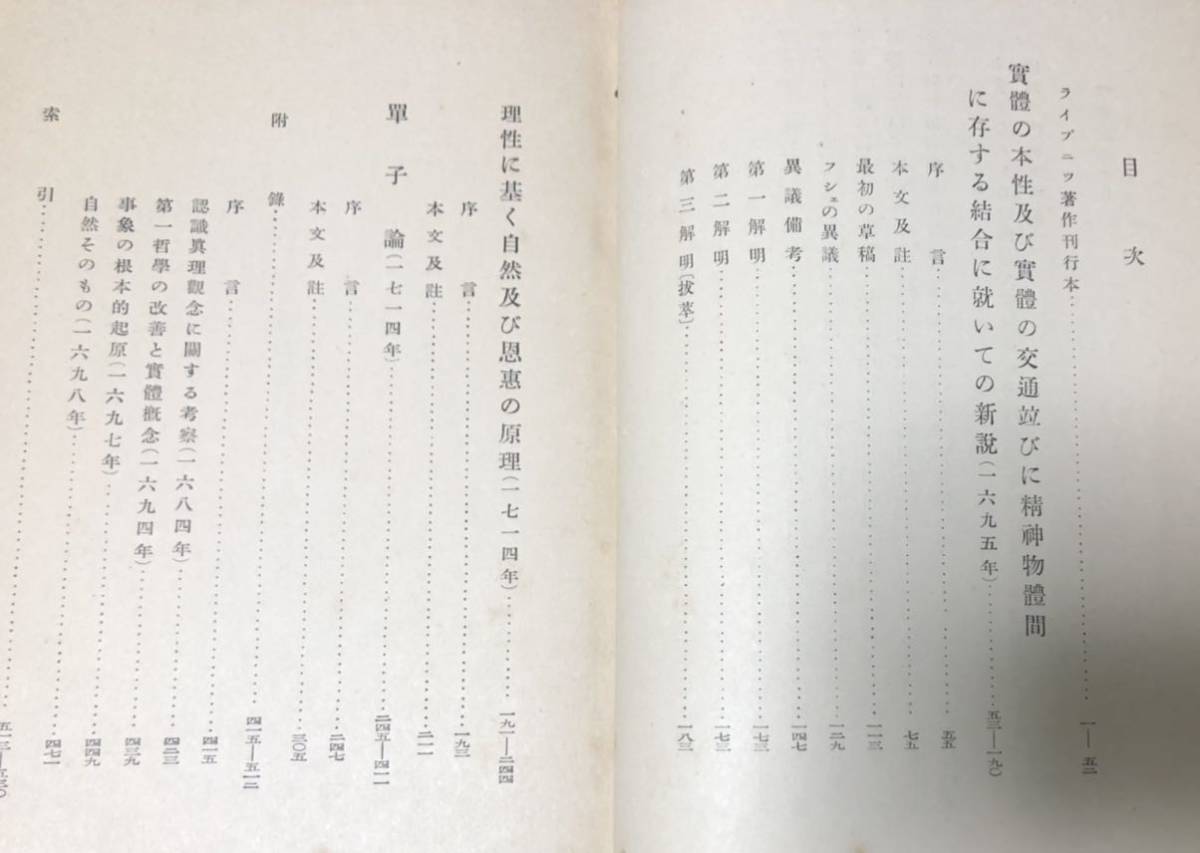 目次
ライプニツ著作刊行本…………一—五二
實體の本性及び實體の交通竝びに精神物體間
に存する結合に就いての新說(一六九五年)…………五三—一九〇
序言…………五五
本文及註…………七五
最初の草稿…………一一三
フシェの異議…………一二九
異議備考…………一四七
第一解明…………
第二解明…………一七三
第三解明〔拔萃〕…………一八三
理性に基く自然及び恩惠の原理(一七一四年)…………一九一—二四四
序言…………一九三
本文及註…………二一一
單子論(一七一四年)…………二四五—四一一
序言…………二四七
本文及註…………三〇五
附錄…………四一五—五一二
序言…………四一五
認識眞理觀念に關する考察(一六八四年)…………四二三
第一哲學の改善と實體槪念(一六九四年)…………四三九
事象の根本的起原(一六九七年)…………四四九
自然そのもの(一六九八年)…………四七一
索引…………五一三—五三〇